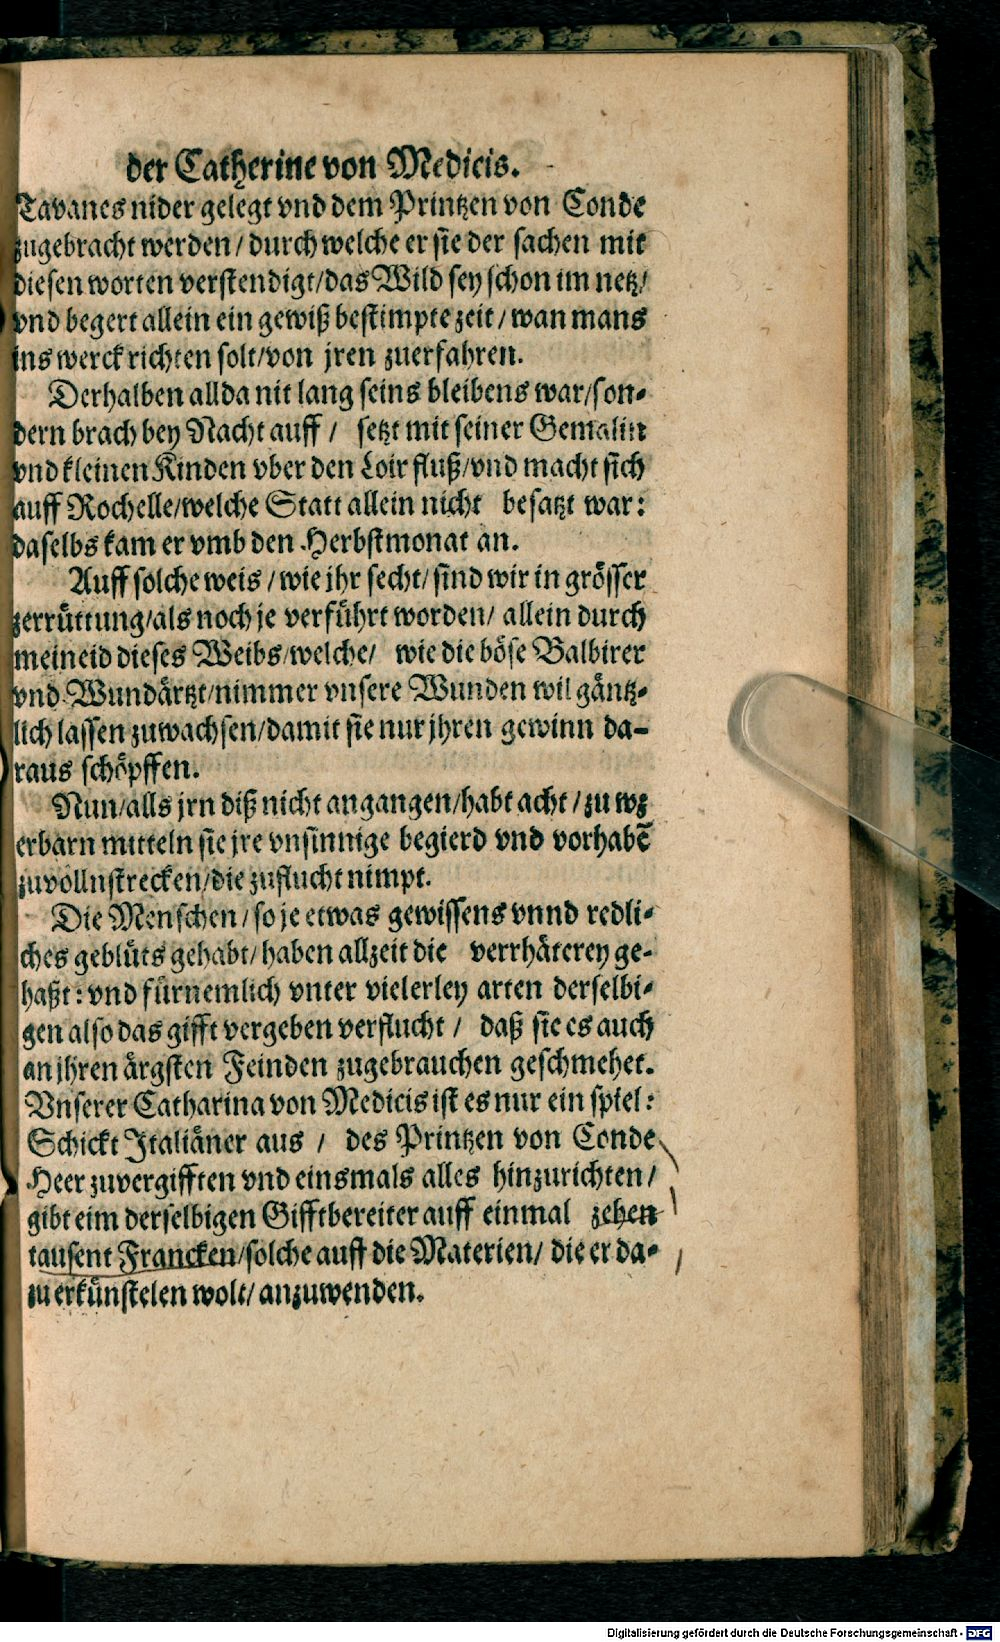 der Catherine von Medicis.
Tavanes nider gelegt vnd dem Printzen von Conde
zugebracht werden / durch welche er sie der sachen mit
diesen worten verstendigt / das Wild sey schon im netz /
vnd begert allein ein gewiß bestimpte zeit / wan mans
ins werck richten solt / von jren zuerfahren.
Derhalben allda nit lang seins bleibens war / son-
dern brach bey Nacht auff / setzt mit seiner Gemalin
vnd kleinen Kinden vber den Loir fluß / vnd macht sich
auff Rochelle / welche Statt allein nicht besatzt war:
daselbs kam er vmb den Herbstmonat an.
Auff solche weis / wie jhr secht / sind wir in grösser
zerrüttung / als noch je verführt worden / allein durch
meineid dieses Weibs / welche / wie die böse Balbirer
vnd Wundärtzt / nimmer vnsere Wunden wil gäntz-
lich lassen zuwachsen / damit sie nur jhren gewinn da-
raus schöpffen.
Nun / alls jrn diß nicht angangen / habt acht / zu wz
erbarn mitteln sie jre vnsinnige begierd vnd vorhabē
zuvollnstrecken / die zuflucht nimpt.
Die Menschen / so je etwas gewissens vnnd redli-
ches geblüts gehabt / haben allzeit die verrhäterey ge-
haßt: vnd fürnemlich vnter vielerley arten derselbi-
gen also das gifft vergeben verflucht / daß sie es auch
an jhren ärgsten Feinden zugebrauchen geschmehet.
Vnserer Catharina von Medicis ist es nur ein spiel:
Schickt Italiäner aus / des Printzen von Conde
Heer zuvergifften vnd einsmals alles hinzurichten /
gibt eim derselbigen Gifftbereiter auff einmal zehen
tausent Francken / solche auff die Materien / die er da-
zu erkünstelen wolt / anzuwenden.
Digitalisierung gefördert durch die Deutsche Forschungsgemeinschaft - DFG